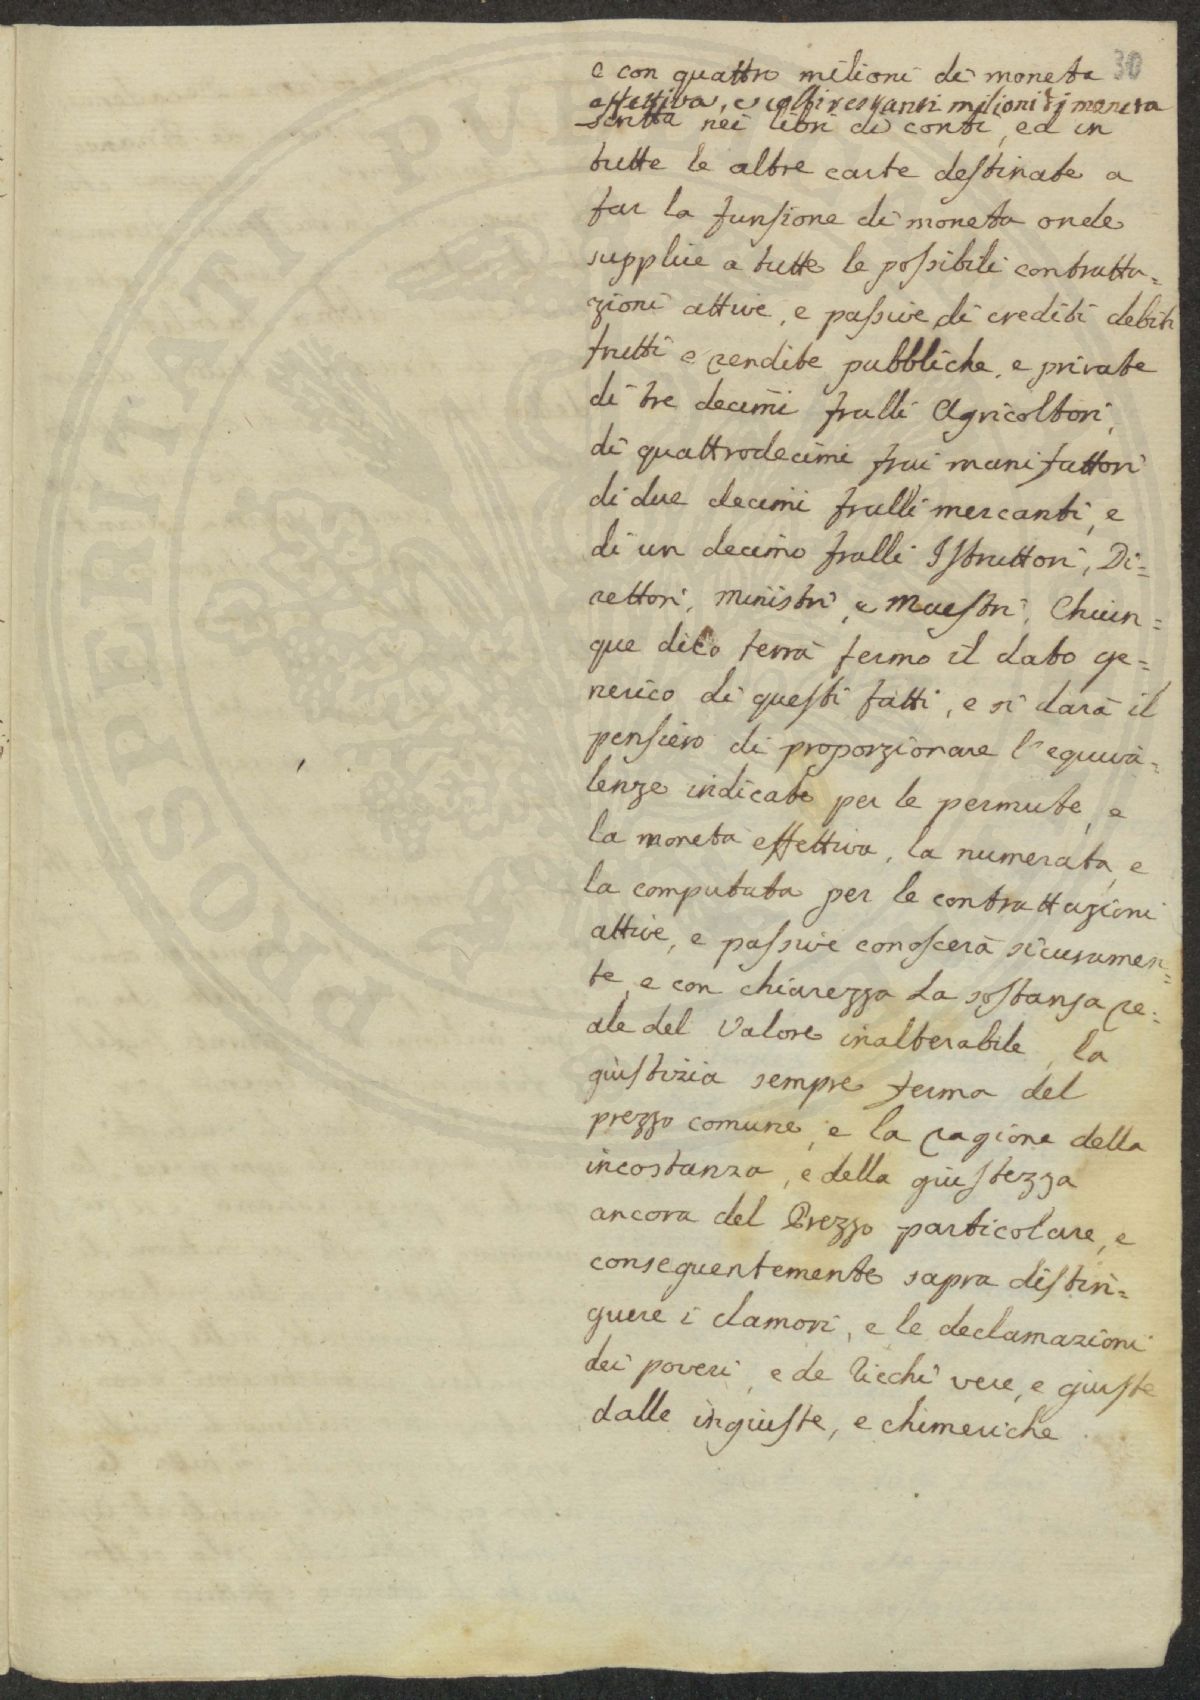 30
e con quattro milioni di moneta
effettiva, e coi restanti milioni di moneta
scritta nei libri di conti, ed in
tutte le altre carte destinate a
far la funsione di moneta onde
supplire a tutte le possibili contratta=
zioni attive, e passive di crediti debiti
frutti e rendite pubbliche, e private
di tre decimi fralli Agricoltori,
di quattrodecimi frai manifattori
di due decimi fralli mercanti, e
di un decimo fralli Istruttori, Di=
rettori, ministri, e Maestri. Chiun=
que dico terrà fermo il dato ge=
nerico di questi fatti, e si darà il
pensiero di proporzionare l'equiva=
lenze indicate per le permute, e
la moneta effettiva, la numerata, e
la computata per le contrattazioni
attive, e passive conoscerà sicuramen=
te, e con chiarezza la sostansa re=
ale del Valore inalterabile, la
giustizia sempre ferma del
prezzo comune, e la ragione della
incostanza, e della giustezza
ancora del Prezzo particolare, e
conseguentemente saprà distin=
guere i clamori, e le declamazioni
dei poveri, e de Ricchi vere, e giuste
dalle ingiuste, e chimeriche.
PUBLI
PROSPERITATI